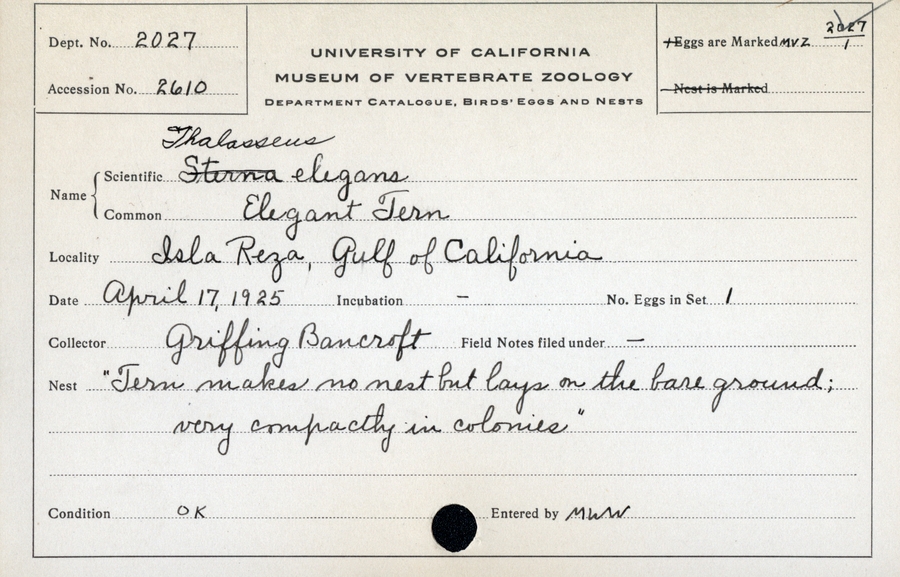 Dept. No. 2027
Accession No. 2610
UNIVERSITY OF CALIFORNIA
MUSEUM OF VERTEBRATE ZOOLOGY
DEPARTMENT CATALOGUE, BIRDS' EGGS AND NESTS
Eggs are Marked MVZ 2027/1
Nest is Marked
Thalasseus
Name Scientific Sterna elegans
Common Elegant Tern
Locality Isla Reza, Gulf of California
Date April 17, 1925 Incubation – No. Eggs in Set 1
Collector Griffing Bancroft Field Notes filed under —
Nest "Tern makes no nest but lays on the bare ground;
very compactly in colonies"
Condition OK Entered by MWW